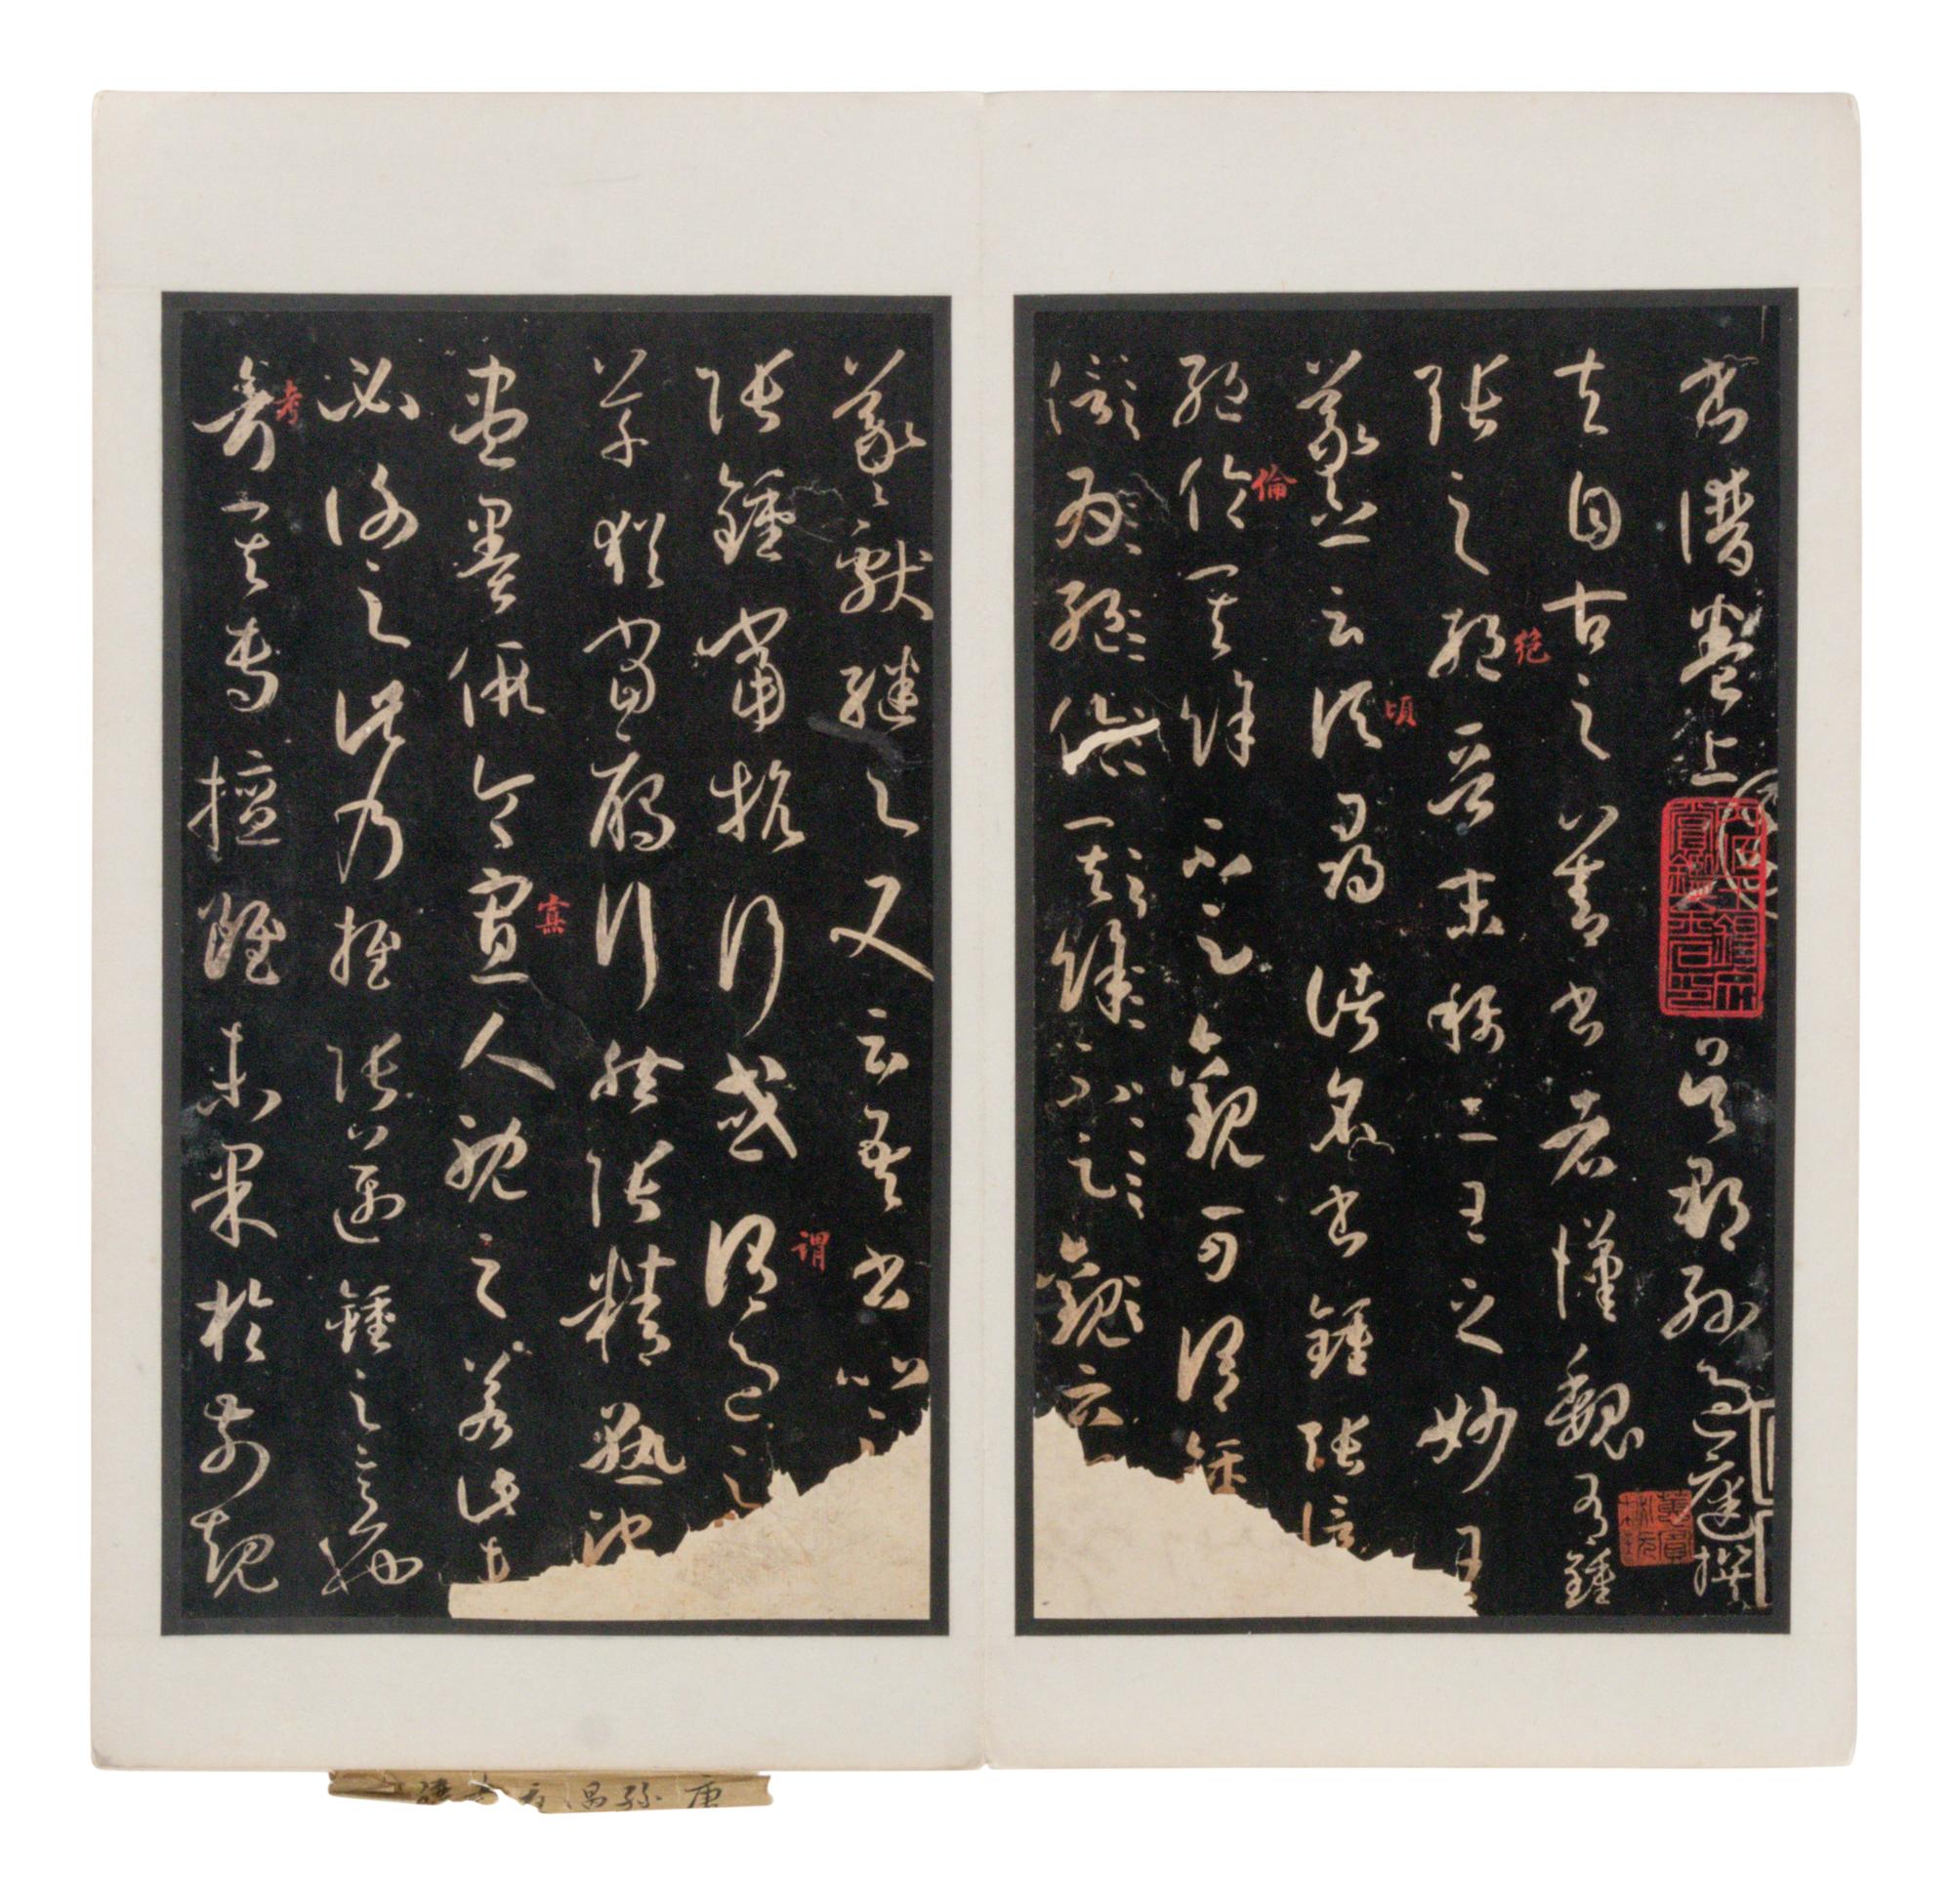 書譜卷上 吳郡孫過庭撰
夫自古之善書者漢魏有鍾
張之絕晉末稱二王之妙王
絕
羲之云頃尋諸名書鍾張信
頃
絕倫其餘不足觀可謂鍾
倫
信為絕倫其餘不足觀云
羲獻繼之又云吾書比
張鍾當抗行或謂過之
謂
草猶當雁行然張精熟池
盡墨假令寡人耽之若此未
寡
必謝之此乃推張邁鍾之意也
考其專擅雖未果於前規
考
唐孫過庭書譜